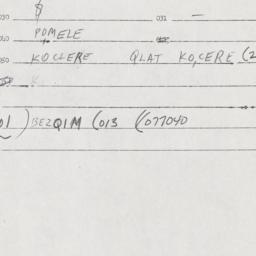 030 $ 031 —
POMELE
050 KOCLERE QLAT KO,CERE (2
01) BEZQIM (013 ((077040